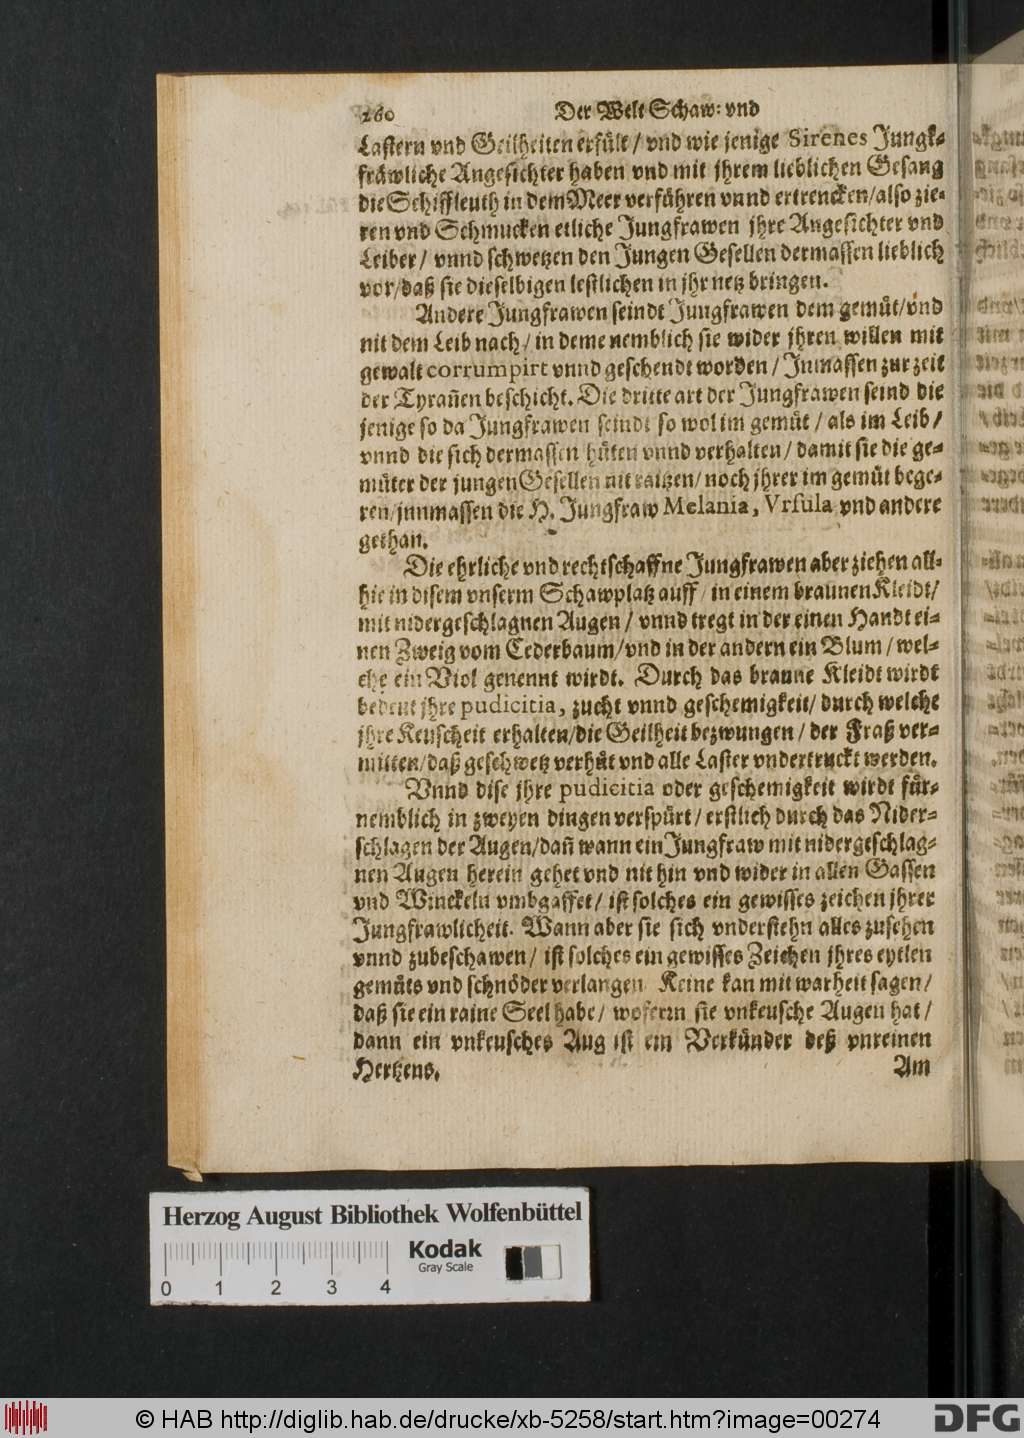 260 Der Welt Schaw: vnd
Lastern vnd Geilheiten erfült / vnd wie jenige Sirenes Jungk-
fräwliche Angesichter haben vnd mit jhrem lieblichen Gesang
die Schiffleuth in dem Meer verführen vnnd ertrencken / also zie-
ren vnd Schmucken etliche Jungfrawen jhre Angesichter vnd
Leiber / vnnd schwetzen den Jungen Gesellen dermassen lieblich
vor / daß sie dieselbigen lestlichen in jhr netz bringen.
Andere Jungfrawen seindt Jungfrawen dem gemüt / vnd
nit dem Leib nach / in deme nemblich sie wider jhren willen mit
gewalt corrumpirt vnnd geschendt worden / Inmassen zur zeit
der Tyrañen beschicht. Die dritte art der Jungfrawen seind die
jenige so da Jungfrawen seindt so wol im gemüt / als im Leib /
vnnd die sich dermassen hüten vnnd verhalten / damit sie die ge-
müter der jungen Gesellen nit raitzen / noch jhrer im gemüt bege-
ren / jnnmassen die H. Jungfraw Melania, Vrsula vnd andere
gethan.
Die ehrliche vnd rechtschaffne Jungfrawen aber ziehen all-
hie in disem vnserm Schawplatz auff / in einem braunen Kleidt /
mit nidergeschlagnen Augen / vnnd tregt in der einen Handt ei-
nen Zweig vom Cederbaum / vnd in der andern ein Blum / wel-
che ein Viol genennt wirdt. Durch das braune Kleidt wirdt
bedeut jhre pudicitia, zucht vnnd geschemigkeit / durch welche
jhre Keuscheit erhalten / die Geilheit bezwungen / der Fraß ver-
mitten / daß geschwetz verhüt vnd alle Laster vndertruckt werden.
Vnnd dise jhre pudicitia oder geschemigkeit wirdt für-
nemblich in zweyen dingen verspürt / erstlich durch das Nider-
schlagen der Augen / dañ wann ein Jungfraw mit nidergeschlag-
nen Augen herein gehet vnd nit hin vnd wider in allen Gassen
vnd Winckeln vmbgaffet / ist solches ein gewisses zeichen jhrer
Jungfrawlicheit. Wann aber sie sich vnderstehn alles zusehen
vnnd zubeschawen / ist solches ein gewisses Zeichen jhres eytlen
gemüts vnd schnöder verlangen Keine kan mit warheit sagen /
daß sie ein raine Seel habe / wofern sie vnkeusche Augen hat /
dann ein vnkeusches Aug ist ein Verkünder deß vnreinen
Hertzens. Am
Herzog August Bibliothek Wolfenbüttel
Kodak
Gray Scale
0 1 2 3 4
© HAB http://diglib.hab.de/drucke/xb-5258/start.htm?image=00274
DFG